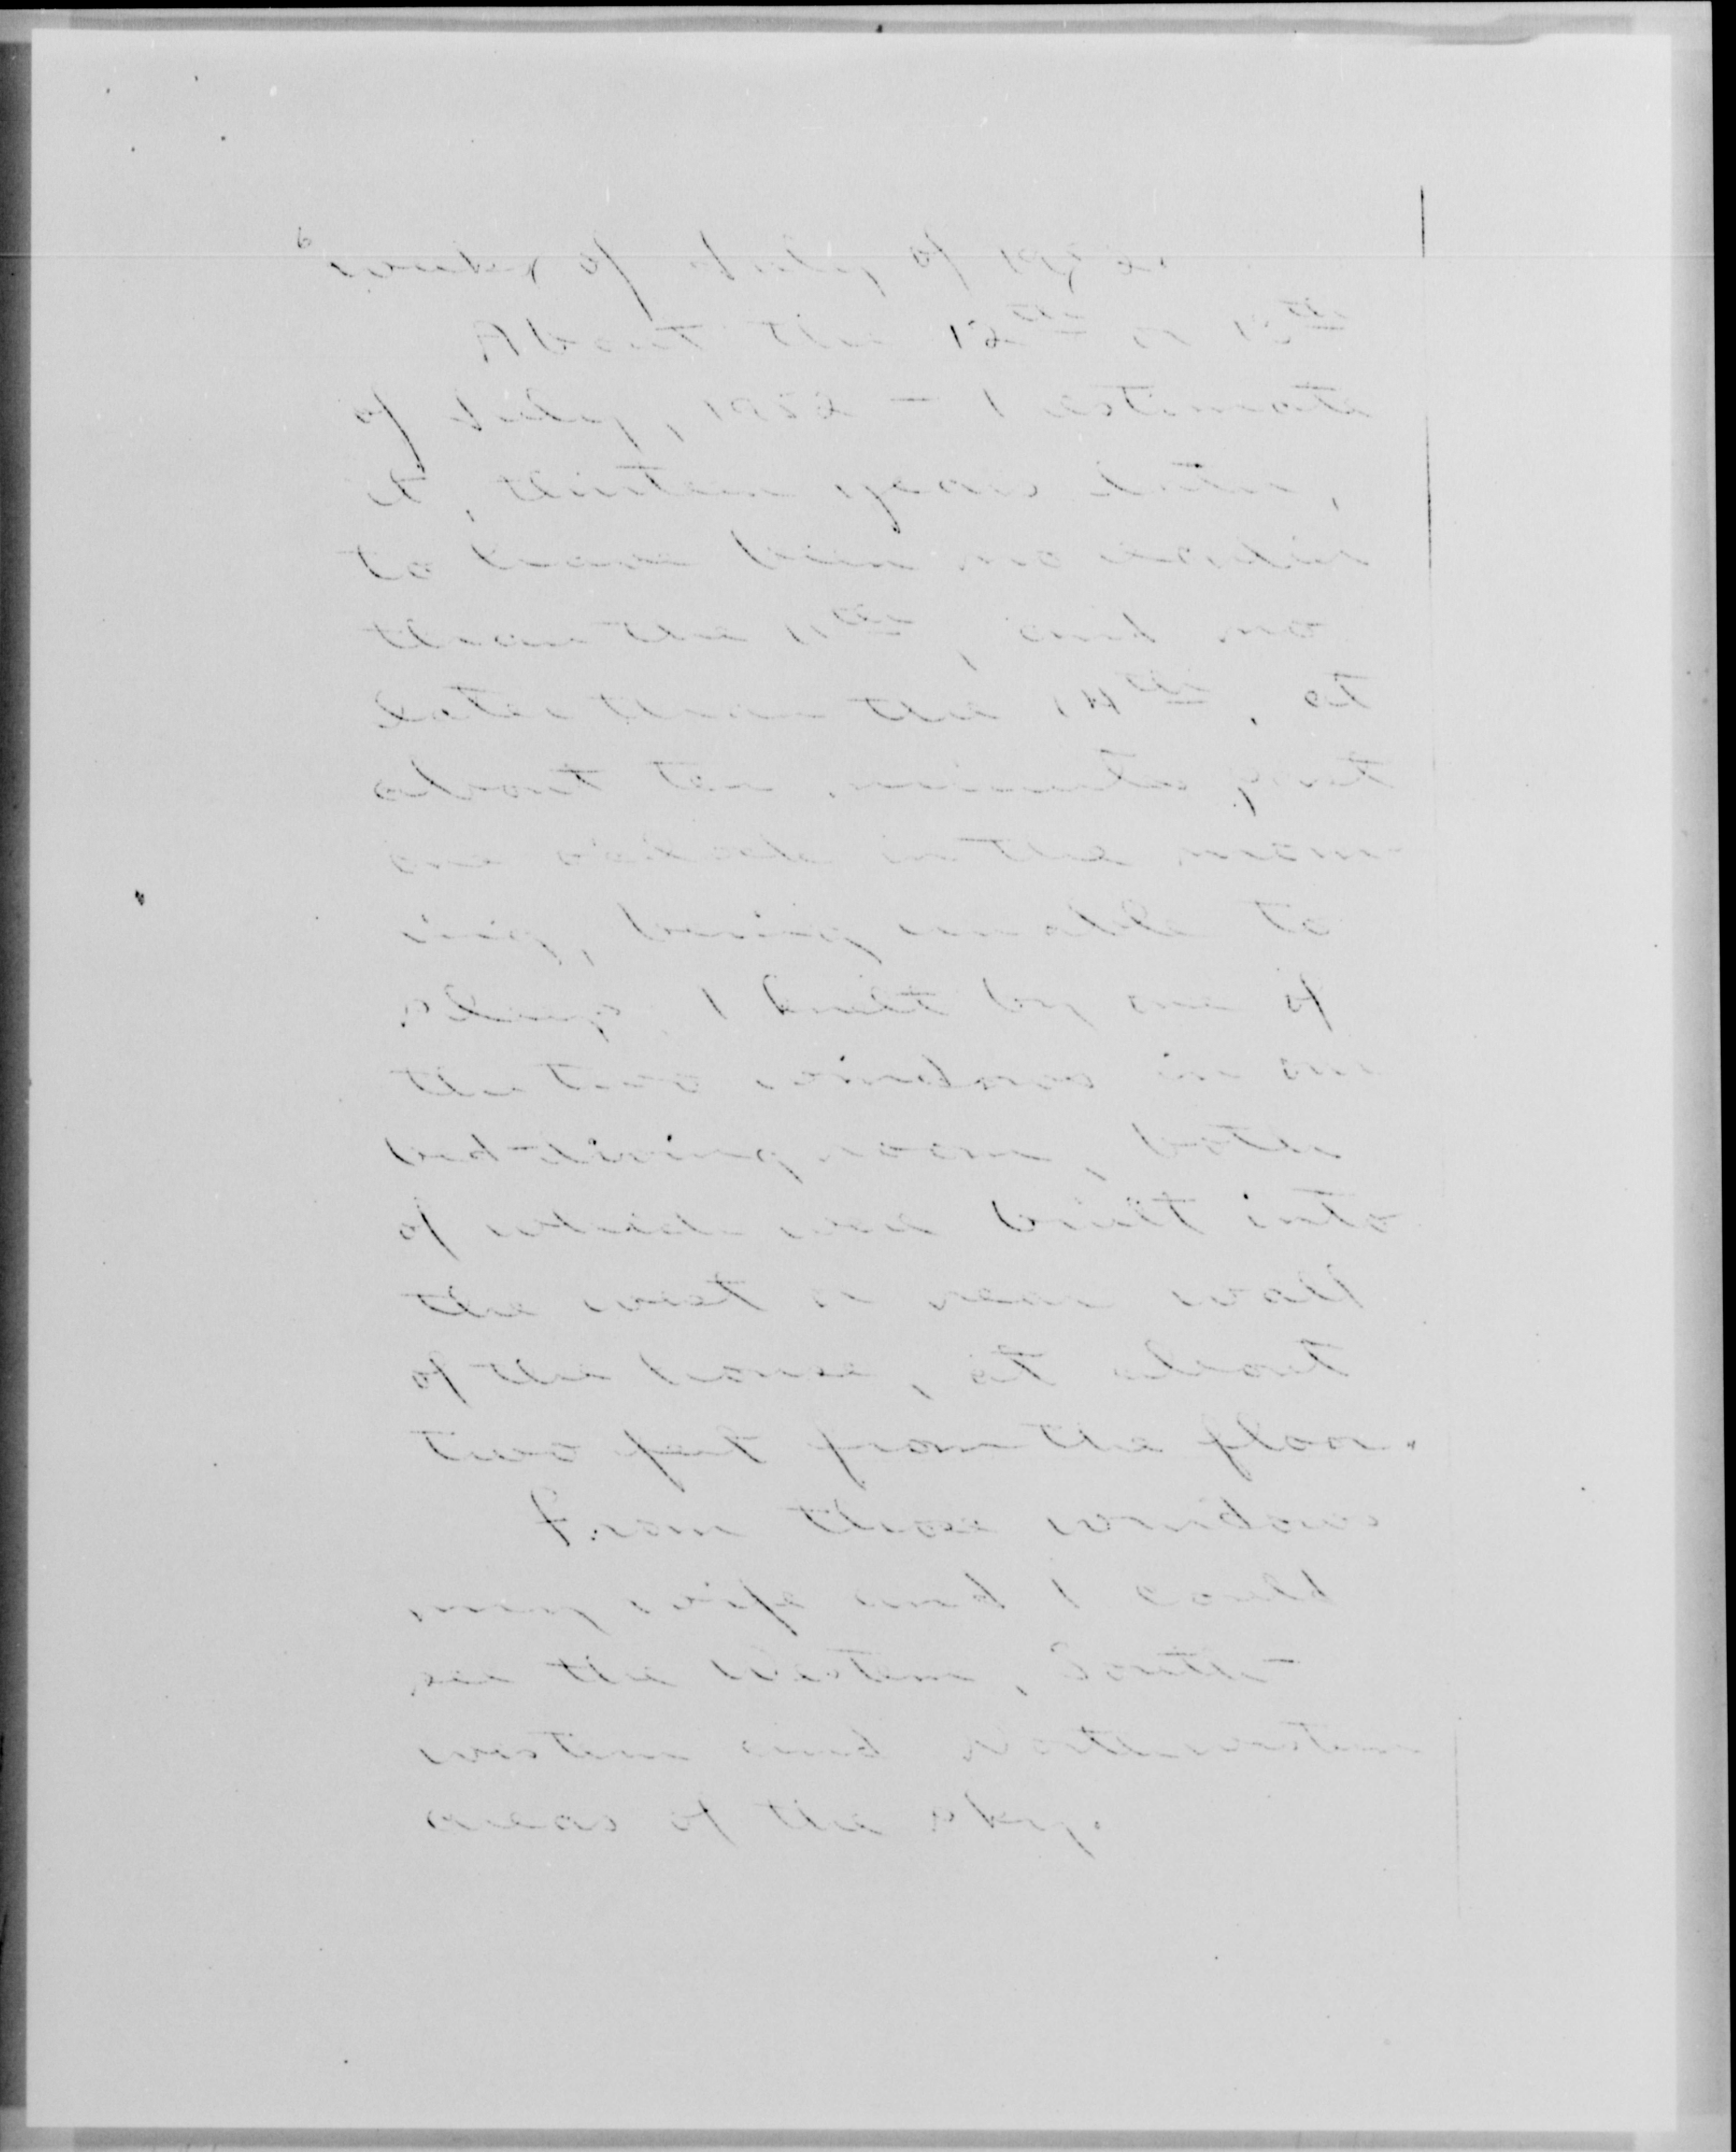 week of July of 1952.
About the 12th or 13th
of July, 1952 - I estimate
it, thirteen years later,
to have been no earlier
than the 11th, and no
later than the 14th, at
about ten minutes past
one o'clock in the morn-
ing, being unable to
sleep, I knelt by one of
the two windows in our
bed-living room, both
of which were built into
the west or rear wall
of the house, at about
two feet from the floor.
From those windows
my wife and I could
see the western, south-
western and northwestern
areas of the sky.